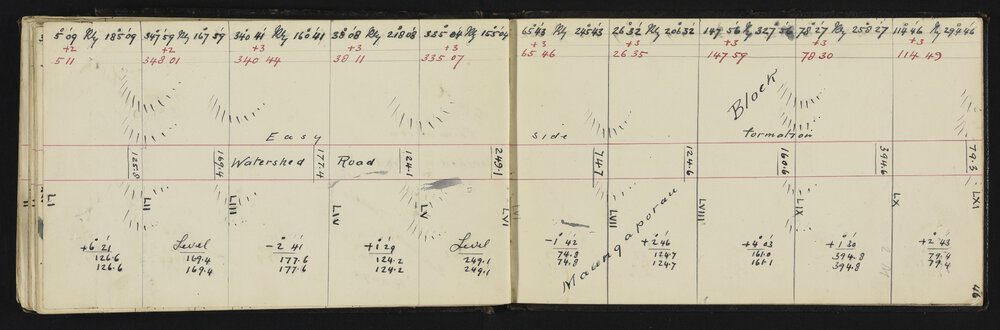 5°09' Rly 185°09' 347°59' Rly 167°59' 340°41' Rly 160°41' 38°08' Rly 218°08' 335°04' Rly 155°04'
+2 +2 +3 +3 +3
5 11 348 01 340 44 38 11 335 07
Easy
125.8 169.4 Watershed 177.4 Road 124.1 249.1
LI LII LIII LIV LV LVI
+6°21' Level -2°41' +1°29' Level
126.6 169.4 177.6 124.2 249.1
126.6 169.4 177.6 124.2 249.1
65°43' Rly 245°43' 26°32' Rly 206°32' 147°56' Rly 327°56' 78°27' Rly 258°27' 114°46' Rly 294°46'
+3 +3 +3 +3 +3
65 46 26 35 147 59 78 30 114 49
Block
side formation
74.7 124.6 160.6 394.6 79.3
Maungaporau
LVII LVIII LIX LX LXI
-1°42' +2°46' +4°03' +1°30' +2°43'
74.8 124.7 161.0 394.8 79.4
74.8 124.7 161.1 394.8 79.4
46